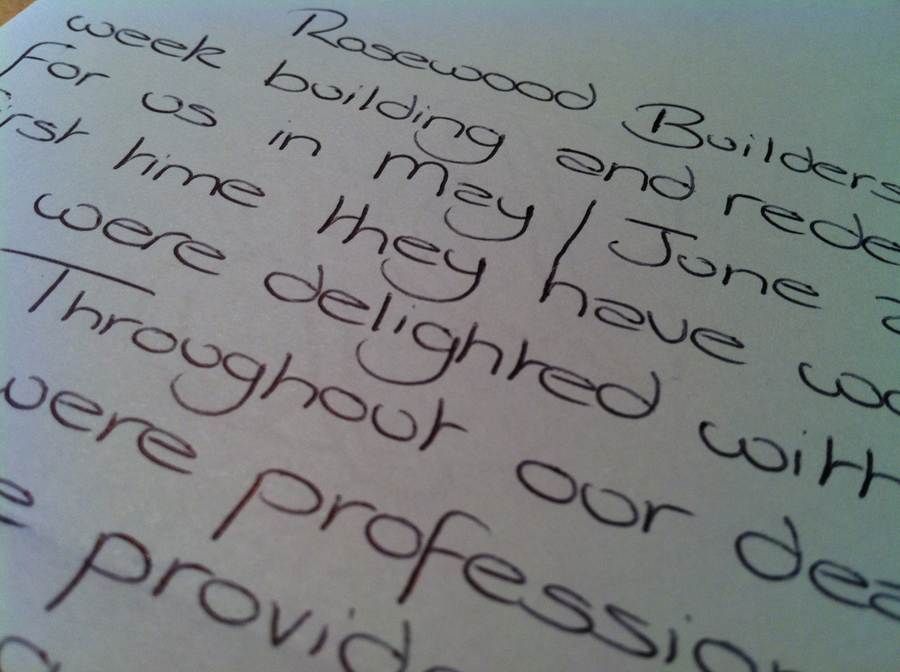 Rosewood Builders
week building and rede
For us in may / June a
irst time they have wo
were delighted with
Throughout our dea
were professio
e provid